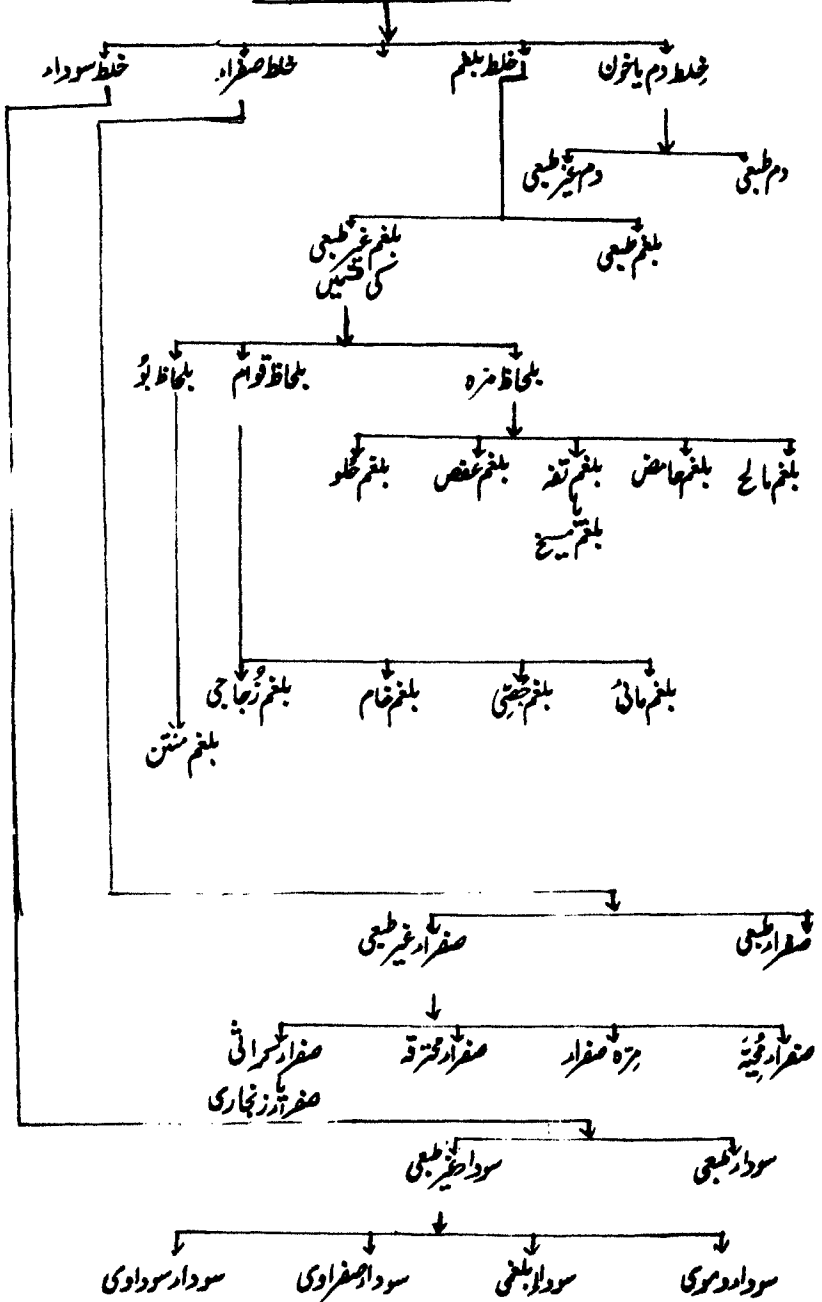 خِلط دم یا خون خلط بلغم خلط صفراء خلط سوداء
دم طبعی دم غیر طبعی
بلغم طبعی بلغم غیر طبعی
کی قسمیں
بلحاظ مزہ بلحاظ قوام بلحاظ بُو
بلغم مالح بلغم حامض بلغم تفہ بلغم عفص بلغم حُلو
یا
بلغم مسیخ
بلغم مائی بلغم جصّی بلغم خام بلغم زُجاجی
بلغم منتن
صفراء طبعی صفراء غیر طبعی
صفراء مُحِیّہ مِرّہ صفراء صفراء محترقہ صفراء کراثی
یا
صفراء زنجاری
سوداء طبعی سوداء غیر طبعی
سوداء دموی سوداء بلغمی سوداء صفراوی سوداء سوداوی